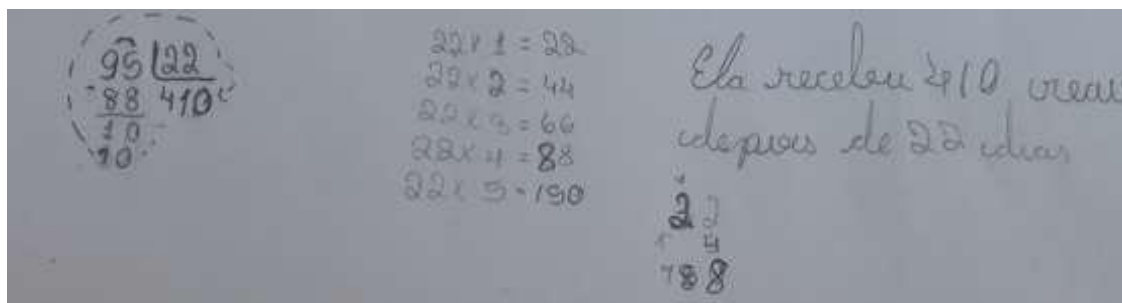 95 22
88 410
10
10
22 x 1 = 22
22 x 2 = 44
22 x 3 = 66
22 x 4 = 88
22 x 5 = 190
Ela recebeu 410 reais
depois de 22 dias
22
4
88